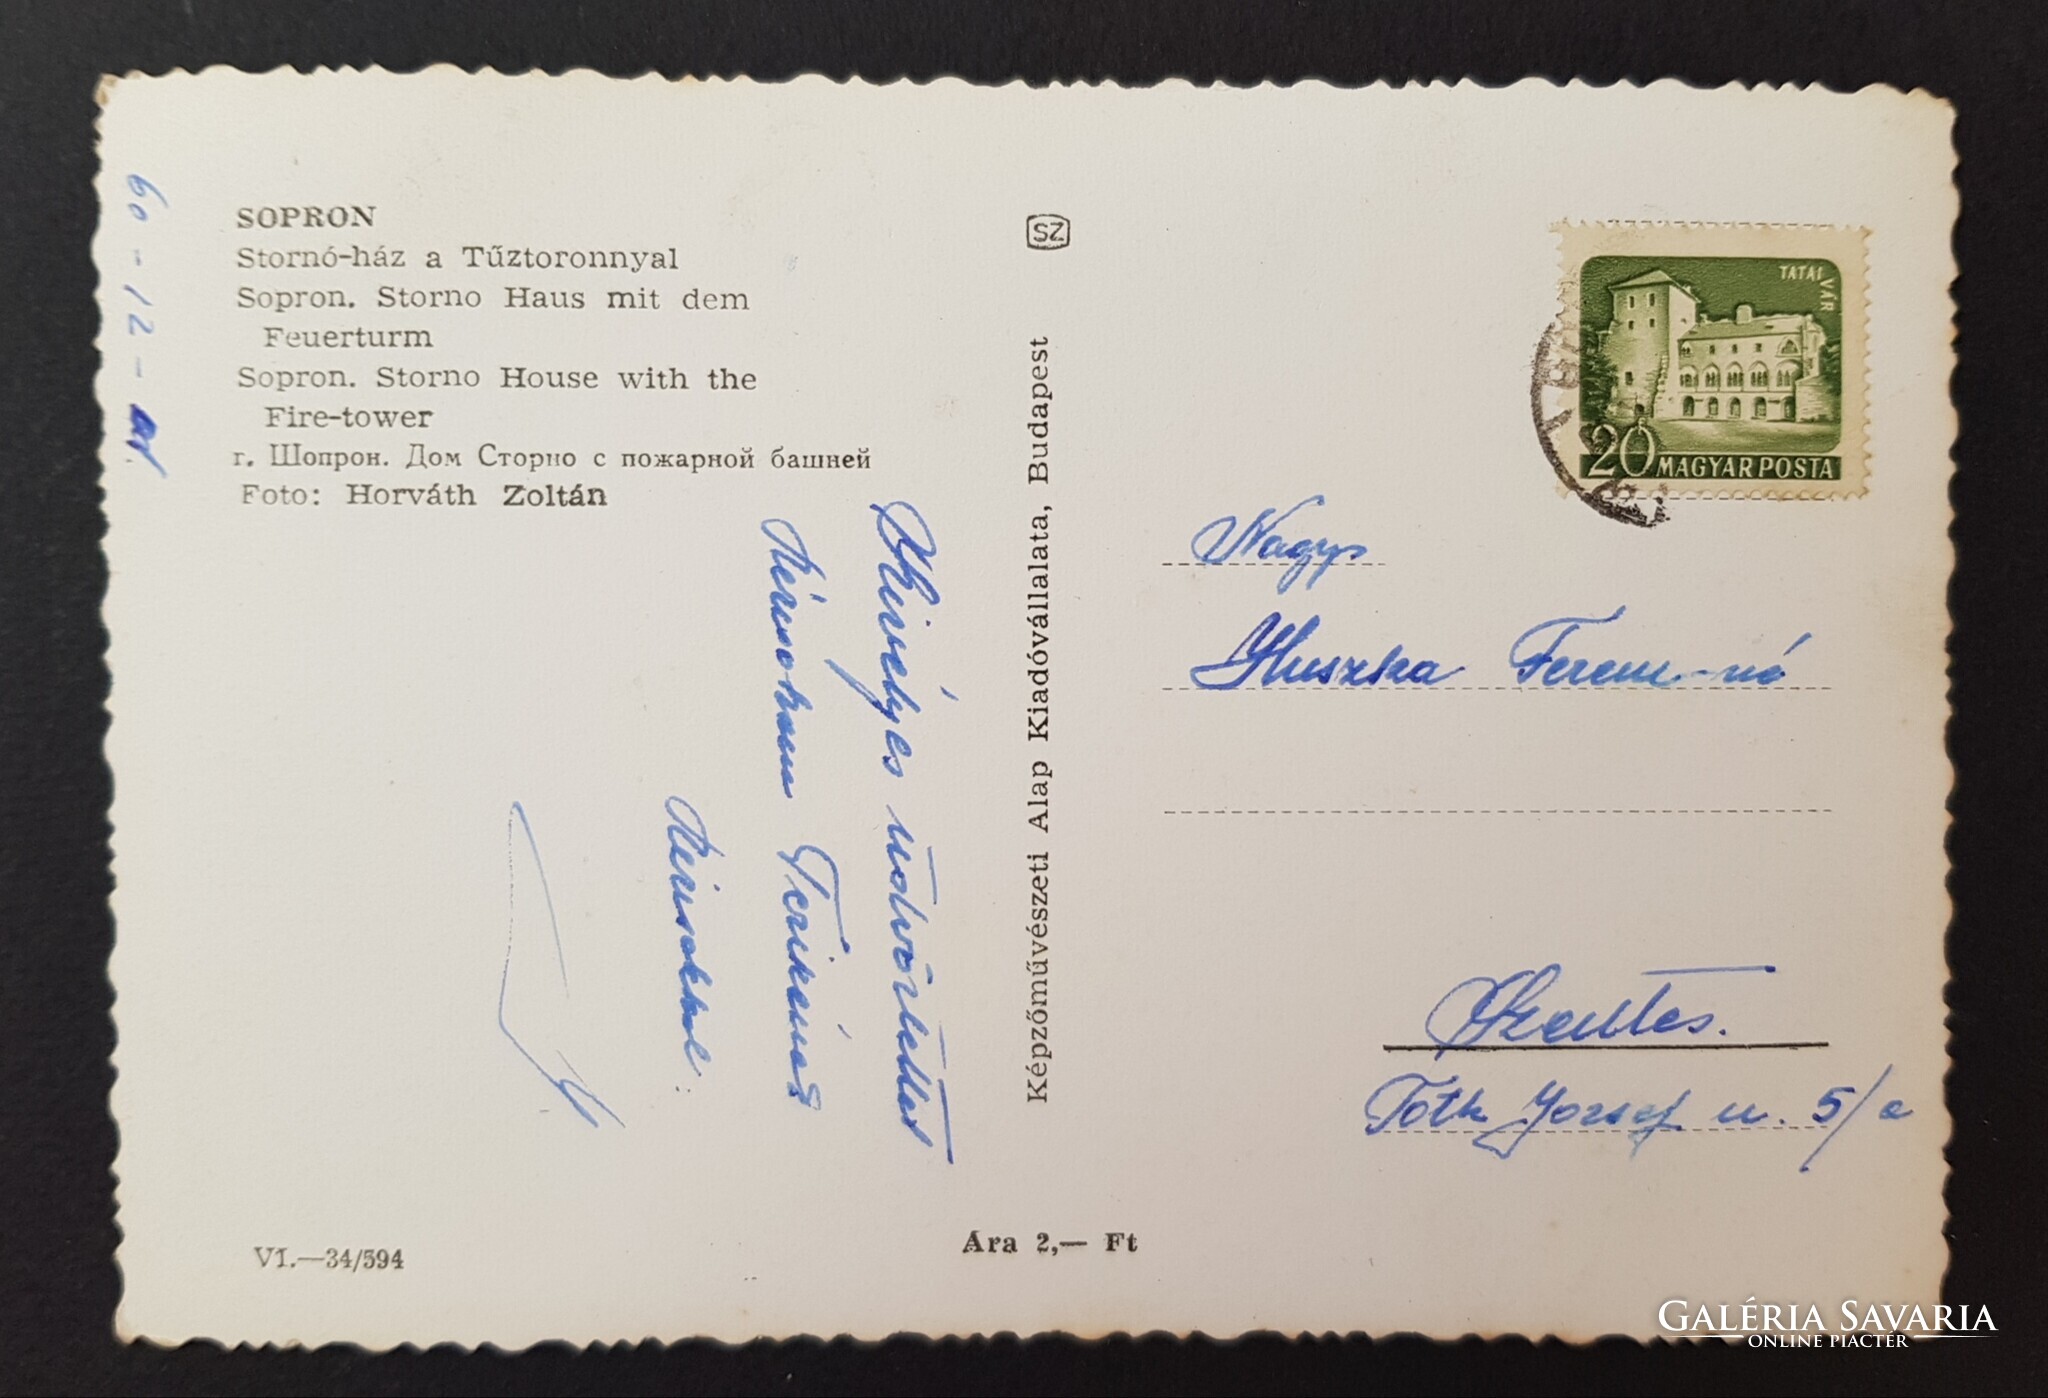 SOPRON
Stornó-ház a Tűztoronnyal
Sopron. Storno Haus mit dem
Feuerturm
Sopron. Storno House with the
Fire-tower
г. Шопрон. Дом Сторно с пожарной башней
Foto: Horváth Zoltán
60-12-
Szívélyes üdvözlettel
VI.—34/594
SZ
Képzőművészeti Alap Kiadóvállalata, Budapest
Ára 2,— Ft
TATAI VÁR
20 MAGYAR POSTA
Nagys
Huszka Ferenc-né
Szentes.
Tóth József u. 5/a
GALÉRIA SAVARIA
ONLINE PIACTÉR